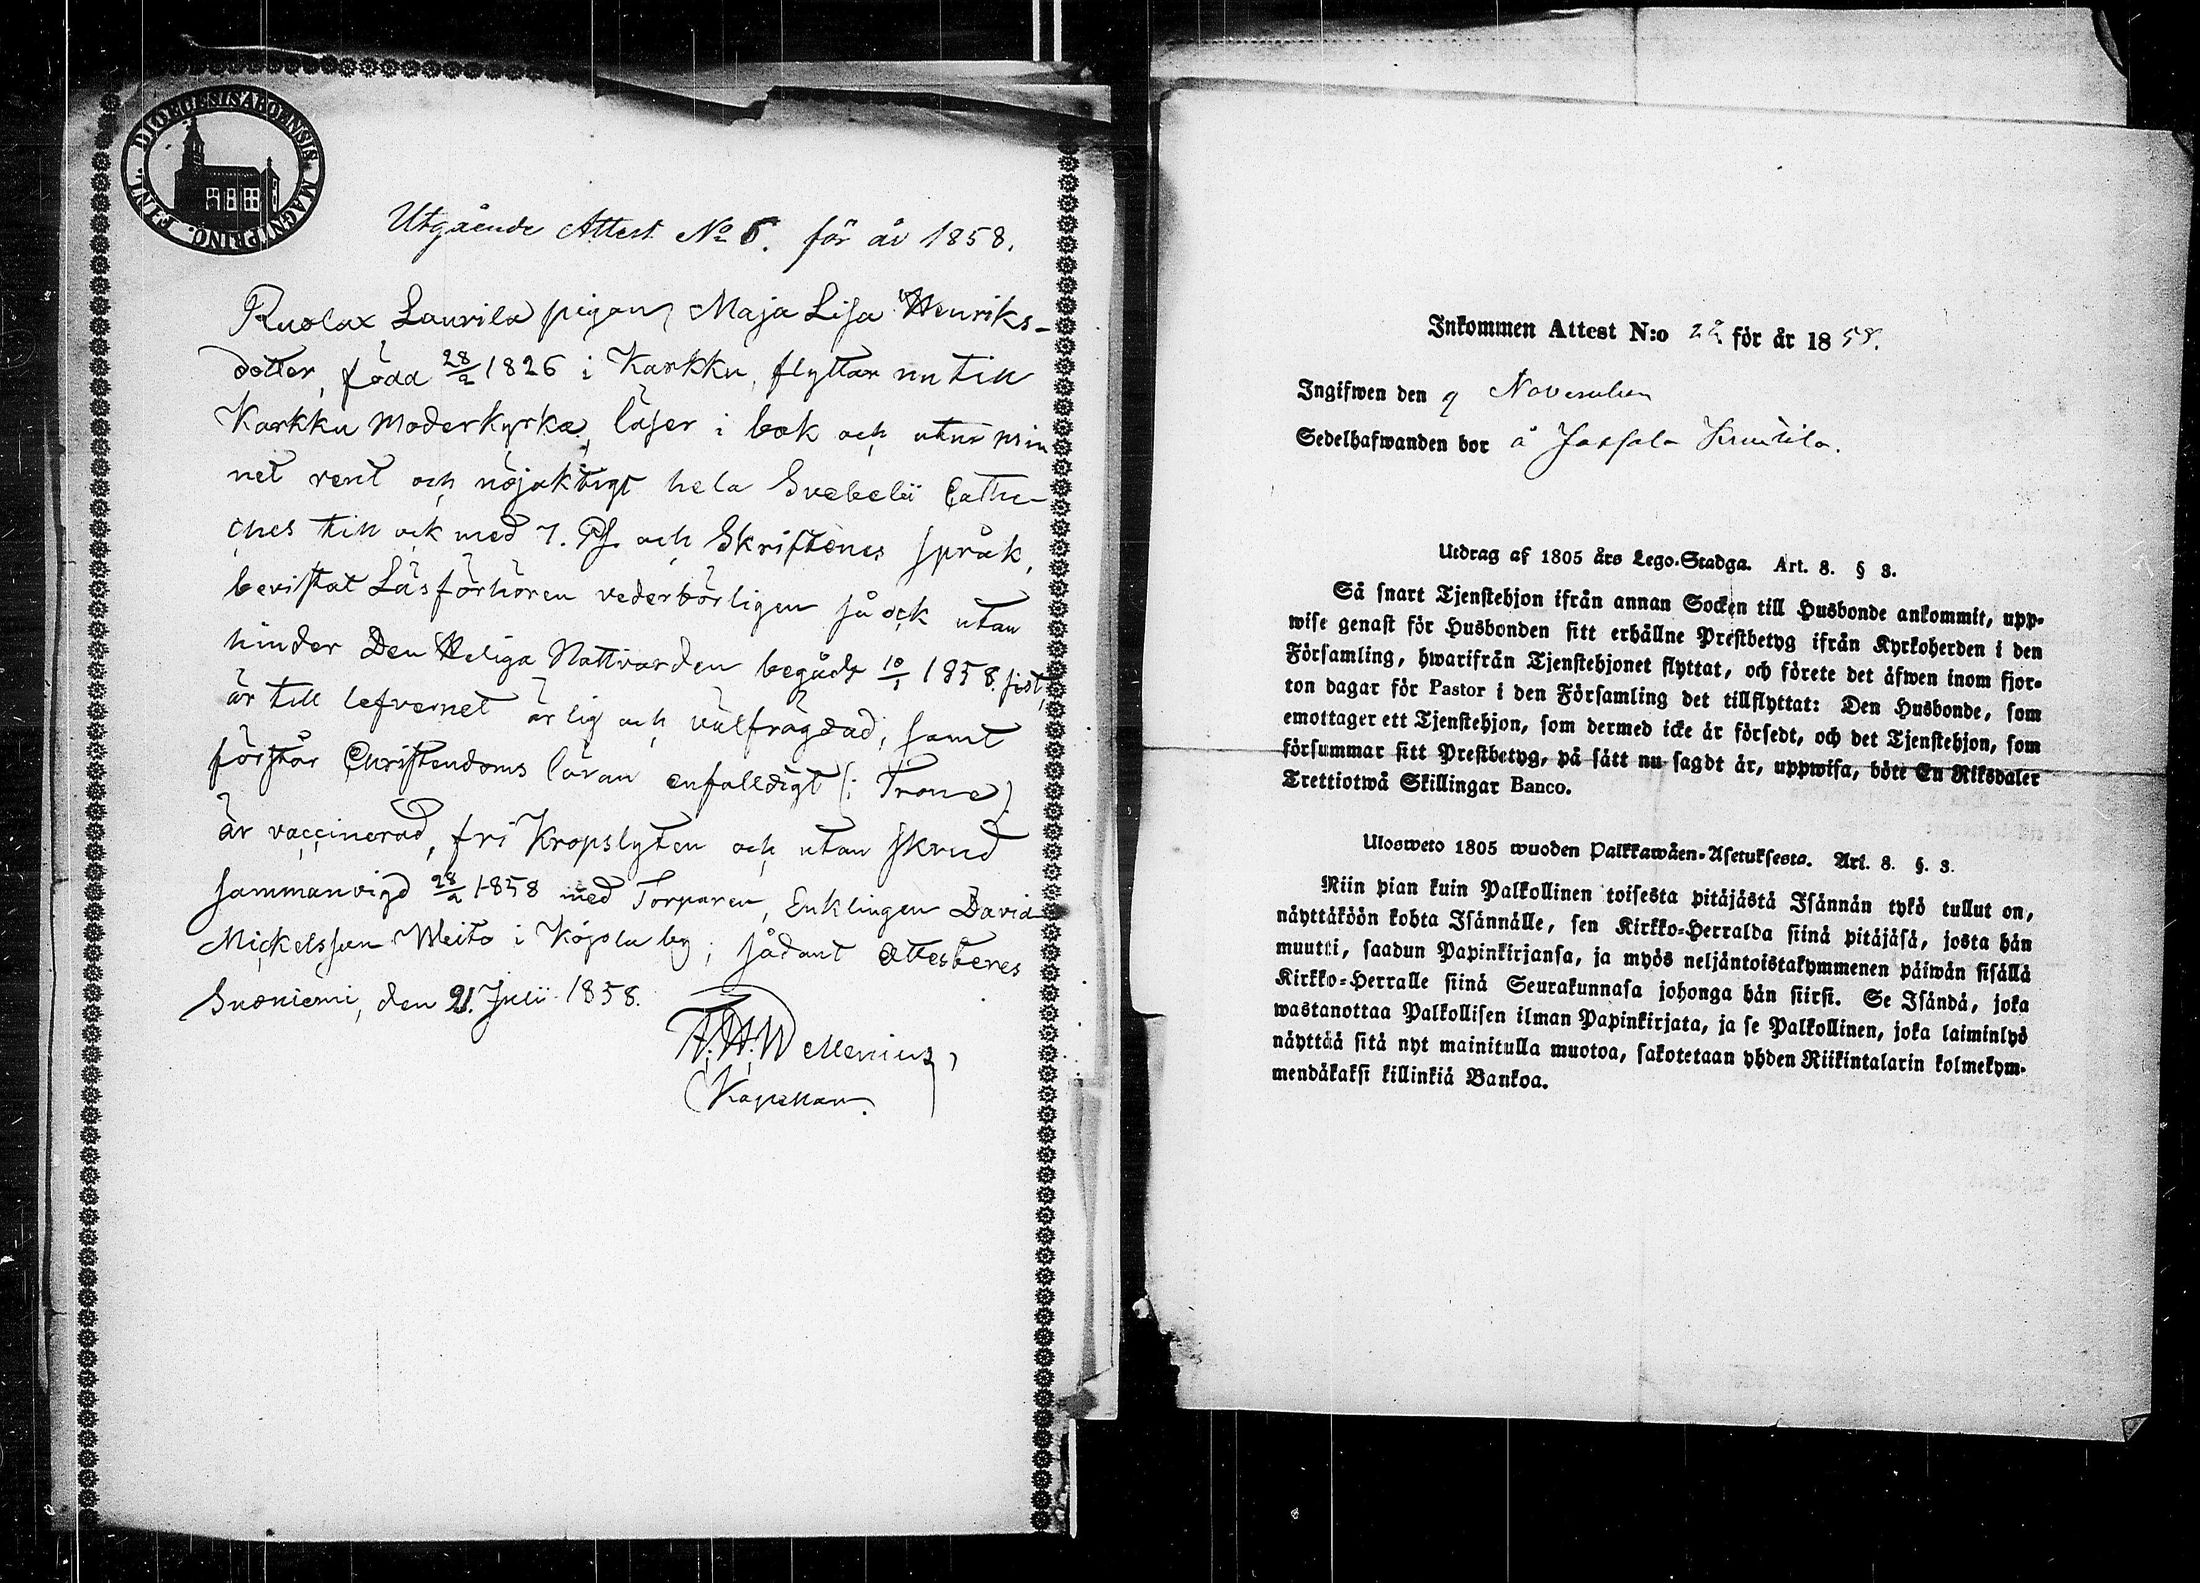 DIOECESIS ABOENSIS MAGNI PRINC. FINL.
Utgående Attest No 6. för år 1858.
Ruolax Laurila pigan, Maja Lisa Henriks-
dotter, född 28/2 1826 i Karkku, flyttar nu till
Karkku Moderkyrka, läser i bok och utur min
net rent och nöjaktigt hela Svebelii Cathe-
ches till och med 7. Ps. och Skriftenes språk,
bevistat Läsförhören vederbörligen så ock utan
hinder Den Heliga Nattvarden begådt 10/1 1858. sist,
är till lefvernet ärlig och välfrägdad, samt
förstår Christendoms läran enfalldigt (: Trone)
är vaccinerad, fri Kropslyten och utan skrud
sammanvigd 28/2 1858 med Torparen, Enklingen David
Mickelsson Weito i Köjola by; sådant attesteres
Suoniemi, den 21. Julii 1858.
Kapellan.
Inkommen Attest N:o 22 för år 1858.
Ingifwen den 9 November
Sedelhafwanden bor å
Utdrag af 1805 års Lego-Stadga. Art. 8. § 3.
Så snart Tjenstehjon ifrån annan Socken till Husbonde ankommit, upp-
wise genast för Husbonden sitt erhållne Prestbetyg ifrån Kyrkoherden i den
Församling, hwarifrån Tjenstehjonet flyttat, och förete det äfwen inom fjor-
ton dagar för Pastor i den Församling det tillflyttat: Den Husbonde, som
emottager ett Tjenstehjon, som dermed icke är försedt, och det Tjenstehjon, som
försummar sitt Prestbetyg, på sätt nu sagdt är, uppwisa, böte En Riksdaler
Trettiotwå Skillingar Banco.
Ulosweto 1805 wuoden Palkkawäen-Asetuksesta. Art. 8. §. 3.
Niin pian kuin Palkollinen toisesta pitäjästä Isännän tykö tullut on,
näyttäköön kohta Isännälle, sen Kirkko-Herralda siinä pitäjäsä, josta hän
muutti, saadun Papinkirjansa, ja myös neljäntoistakymmenen päiwän sisällä
Kirkko-Herralle siinä Seurakunnasa johonga hän siirsi. Se Isändä, joka
wastanottaa Palkollisen ilman Papinkirjata, ja se Palkollinen, joka laiminlyö
näyttää sitä nyt mainitulla muotoa, sakotetaan yhden Riikintalarin kolmekym-
mendäkaksi killinkiä Bankoa.